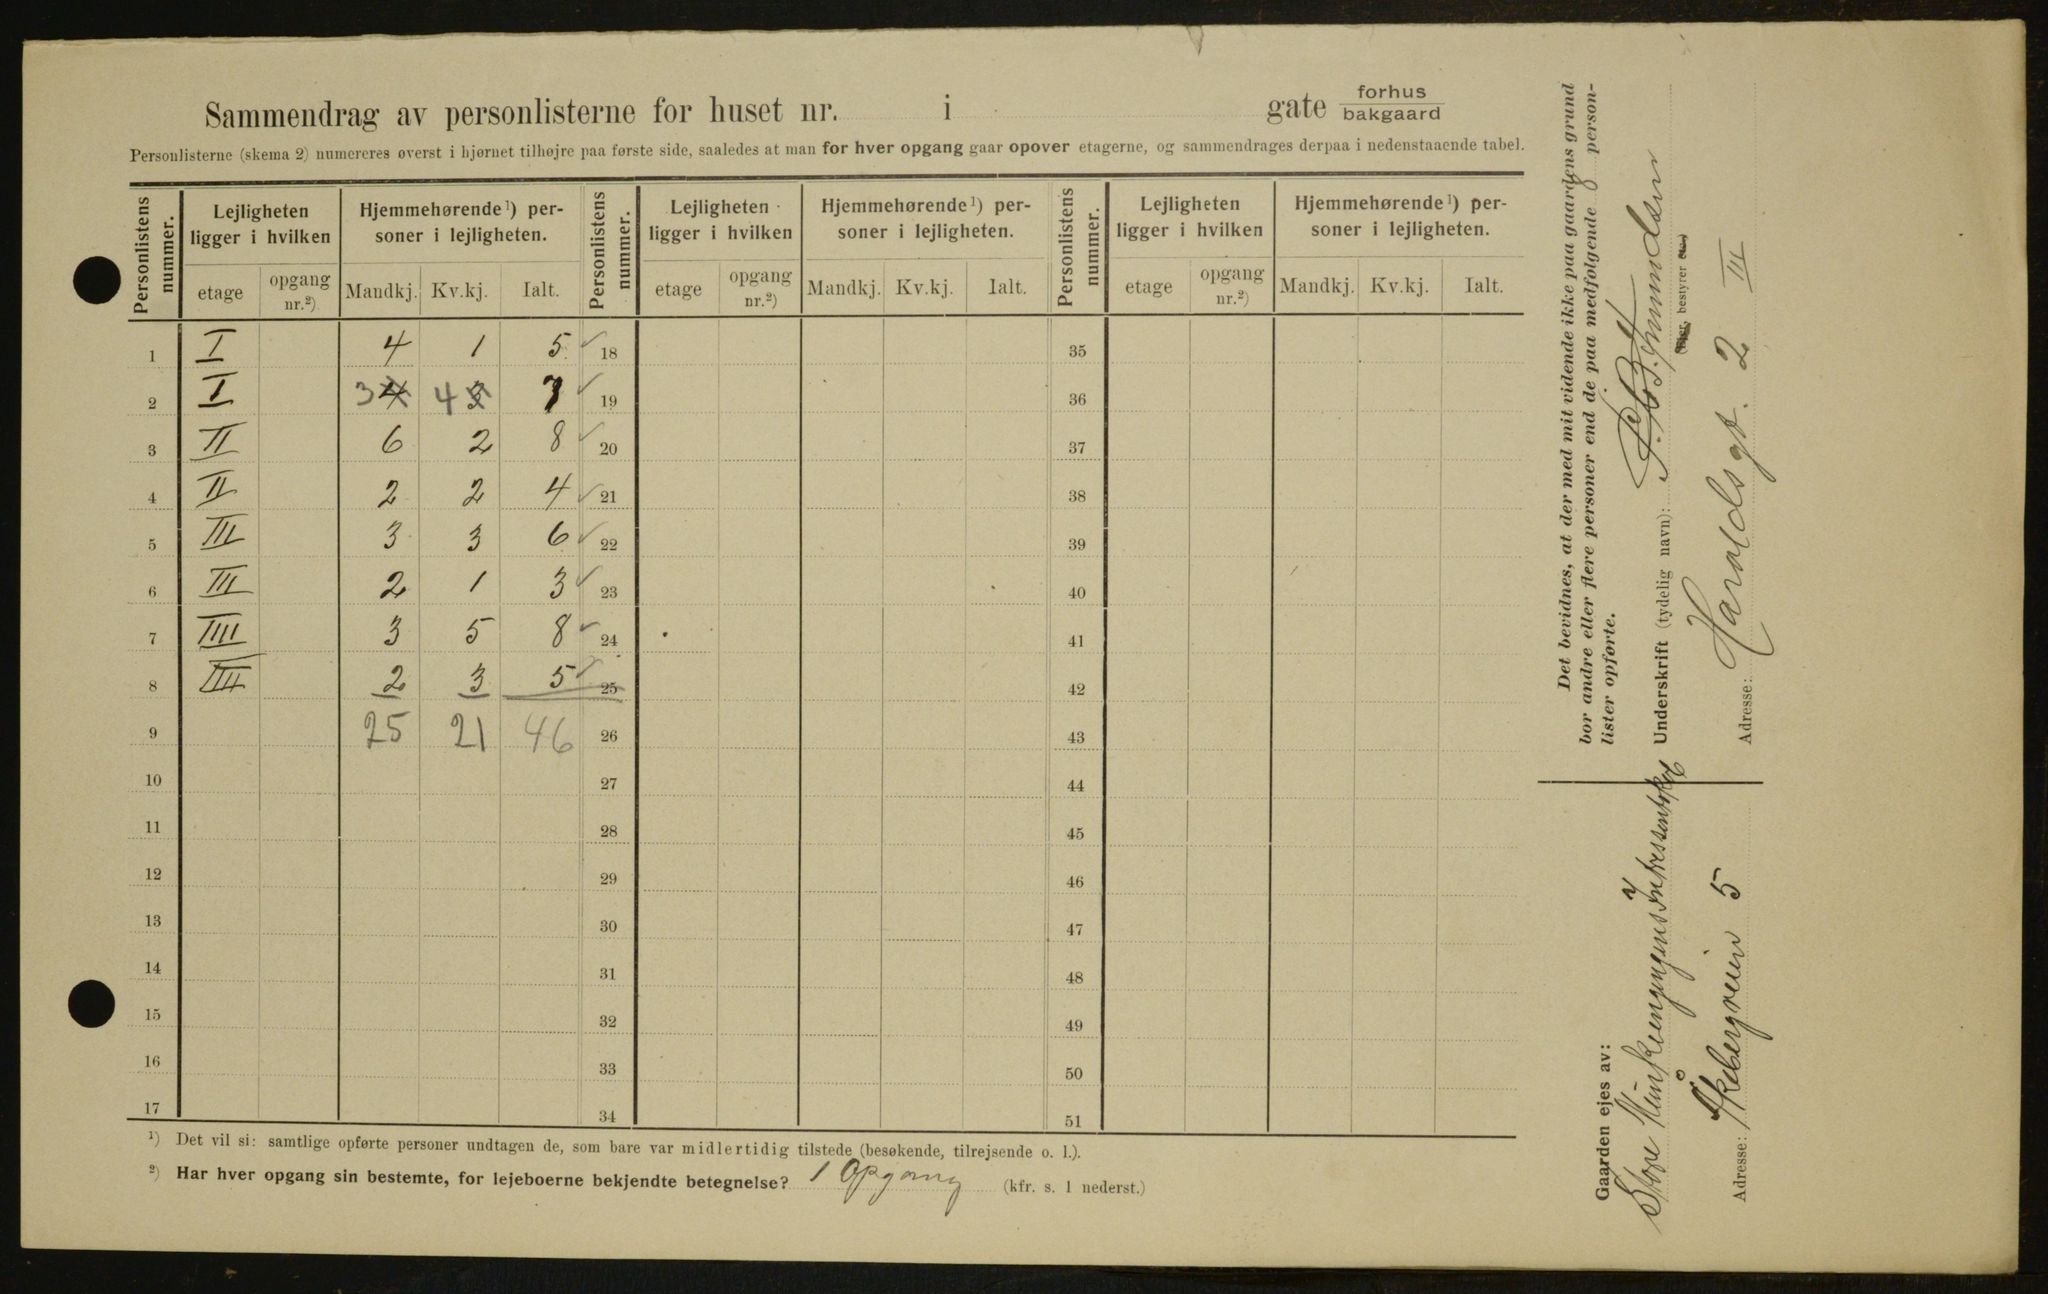 Sammendrag av personlisterne for huset nr. i gate forhus
bakgaard
Personlisterne (skema 2) numereres øverst i hjørnet tilhøjre paa første side, saaledes at man for hver opgang gaar opover etagerne, og sammendrages derpaa i nedenstaaende tabel.
Personlistens nummer. Lejligheten ligger i hvilken Hjemmehørende ¹) personer i lejligheten. Personlistens nummer. Lejligheten ligger i hvilken Hjemmehørende ¹) personer i lejligheten. Personlistens nummer. Lejligheten ligger i hvilken Hjemmehørende ¹) personer i lejligheten.
etage opgang nr.²) Mandkj. Kv.kj. Ialt. etage opgang nr.²) Mandkj. Kv.kj. Ialt. etage opgang nr.²) Mandkj. Kv.kj. Ialt.
1 I 4 1 5 ✓ 18 35
2 I 3 4 4 3 7 ✓ 19 36
3 II 6 2 8 ✓ 20 37
4 II 2 2 4 ✓ 21 38
5 III 3 3 6 ✓ 22 39
6 III 2 1 3 ✓ 23 40
7 IIII 3 5 8 ✓ 24 41
8 IIII 2 3 5 ✓ 25 42
9 25 21 46 26 43
10 27 44
11 28 45
12 29 46
13 30 47
14 31 48
15 32 49
16 33 50
17 34 51
¹) Det vil si: samtlige opførte personer undtagen de, som bare var midlertidig tilstede (besøkende, tilrejsende o. l.).
²) Har hver opgang sin bestemte, for lejeboerne bekjendte betegnelse? 1 Opgang (kfr. s. 1 nederst.)
Det bevidnes, at der med mit vidende ikke paa gaardens grund
bor andre eller flere personer end de paa medfølgende personlister opførte.
Underskrift (tydelig navn):
(Eier, bestyrer etc.)
Adresse: Haraldsgt. 2 III
Gaarden ejes av:
Store
Adresse: Åkebergveien 5